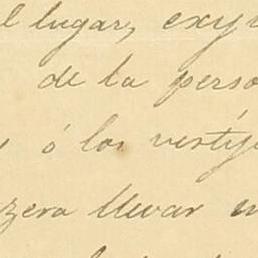 l lugar, exij
de la perso
ó los vestíg
zera llevar